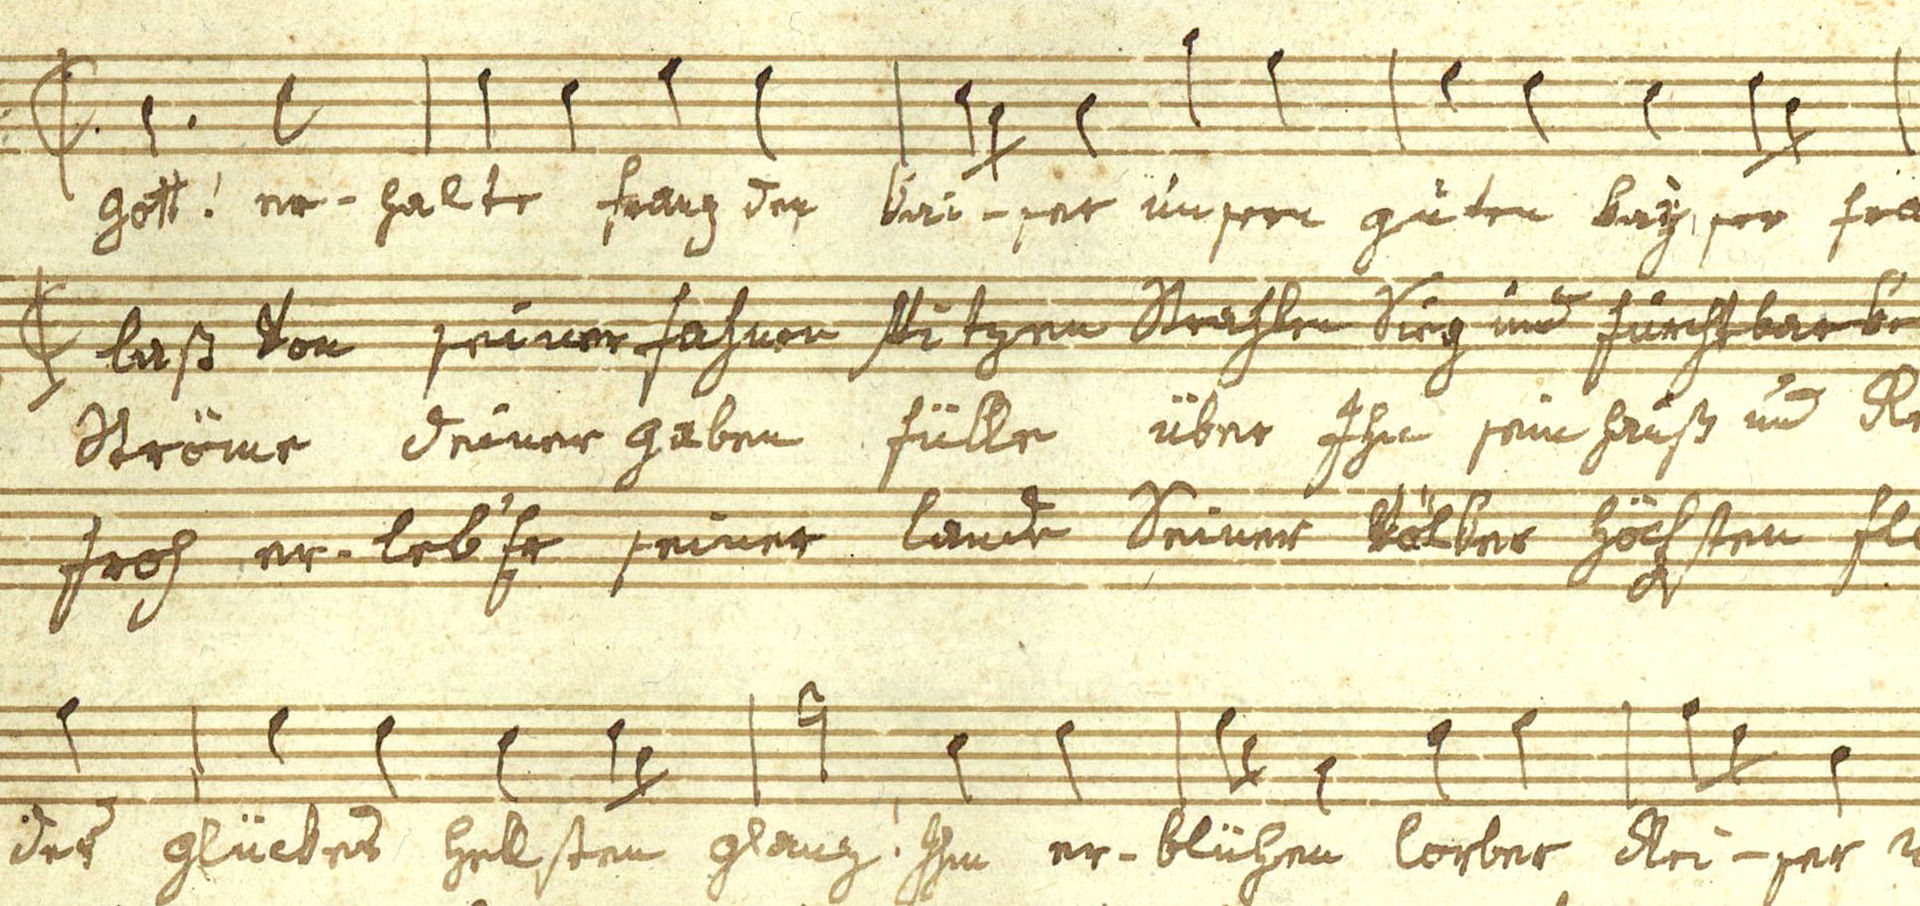 Gott! er-halte Franz den Kai-ser unsern guten Kaÿser Fra
Laß von seiner Fahnen Spitzen Strahlen Sieg und Furchtbarke
Ströme deiner Gaben Fülle über Ihn sein Hauß und Re
Froh er-leb' Er seiner Lande Seiner Völker höchsten Flo
des Glückes hellsten Glanz! Ihm er-blühen Lorber Rei-ser